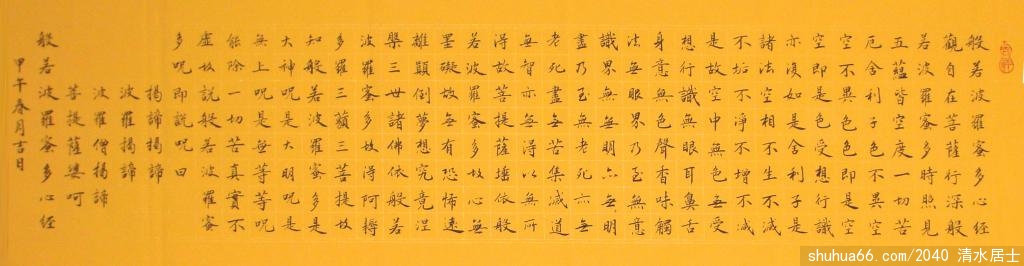 般若波羅蜜多心経
觀自在菩薩行深般
若波羅蜜多時照見
五蘊皆空度一切苦
厄舍利子色不異空
空不異色色即是空
空即是色受想行識
亦復如是舍利子是
諸法空相不生不滅
不垢不淨不增不減
是故空中無色無受
想行識無眼耳鼻舌
身意無色聲香味觸
法無眼界乃至無意
識界無無明亦無無明
盡乃至無老死亦無
老死盡無苦集滅道
無智亦無得以無所
得故菩提薩埵依般
若波羅蜜多故心無
罣礙故無有恐怖遠
離顛倒夢想究竟涅
槃三世諸佛依般若
波羅蜜多故得阿耨
多羅三藐三菩提故
知般若波羅蜜多是
大神咒是大明咒是
無上咒是無等等咒
能除一切苦真實不
虛故說般若波羅蜜
多咒即說咒曰
揭諦揭諦
波羅揭諦
波羅僧揭諦
菩提薩婆呵
般若波羅蜜多心经
甲午春月吉日
shuhua66.com/2040 清水居士